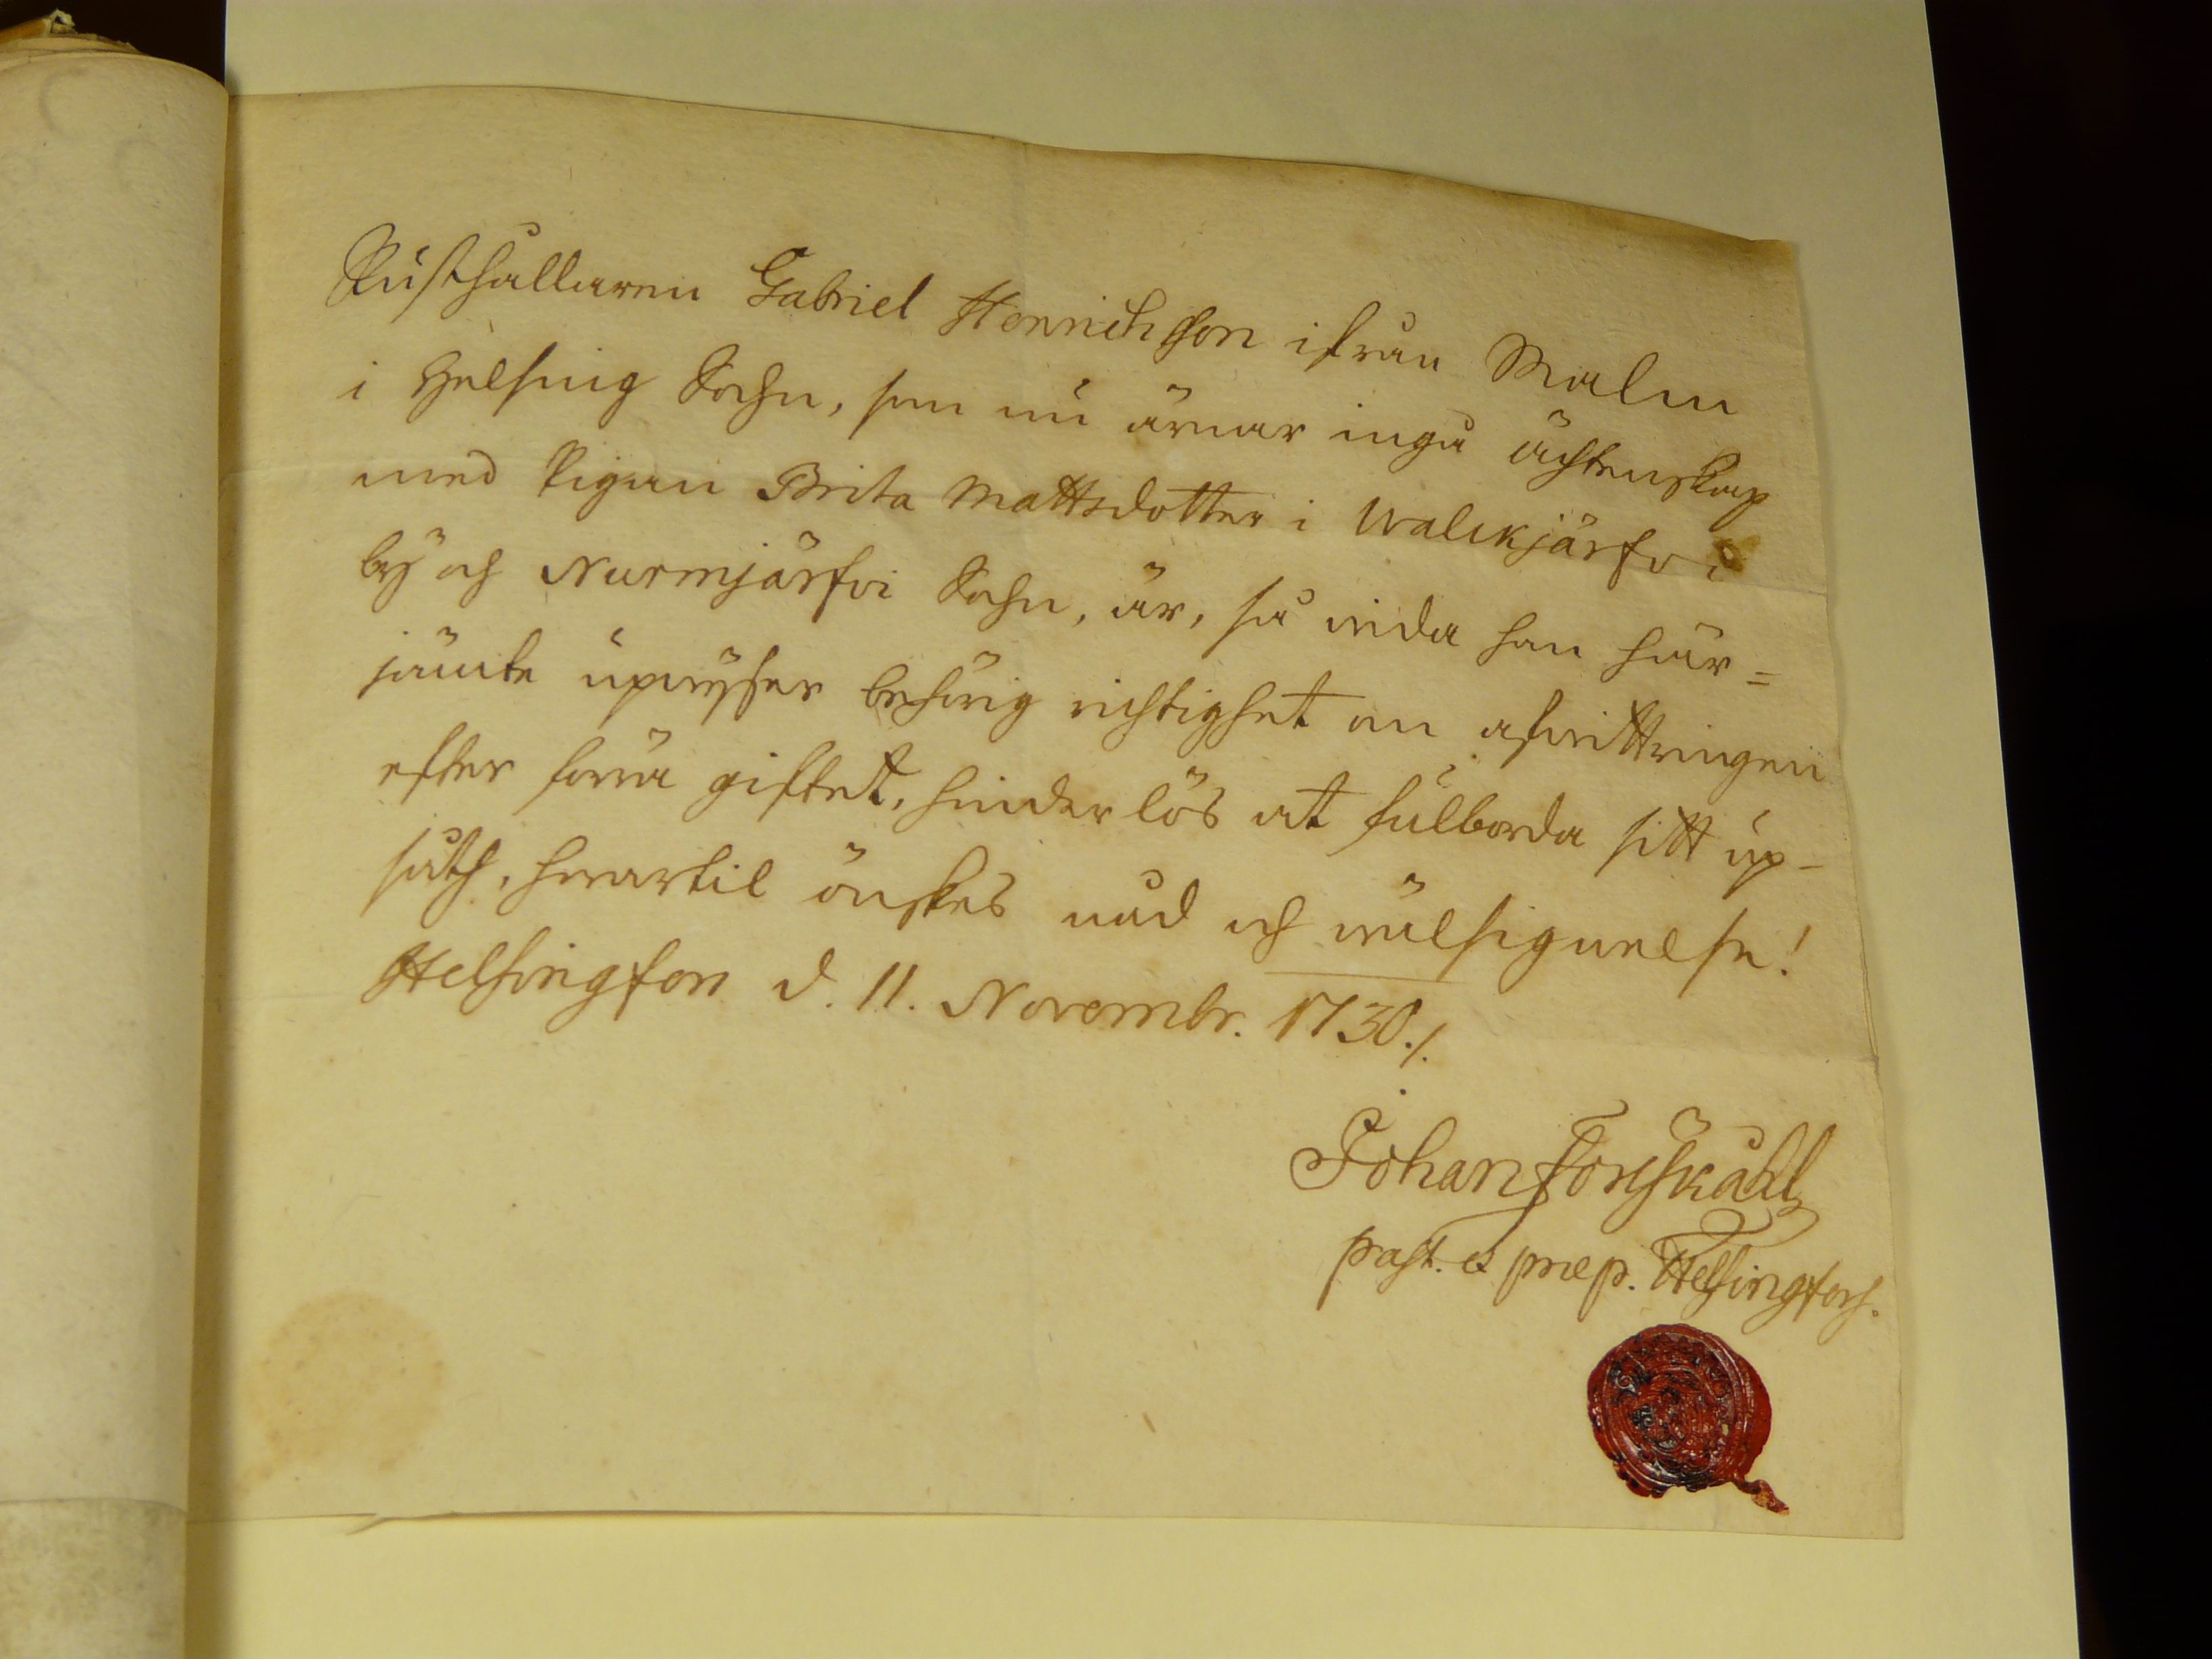 Rusthållaren Gabriel Henrichsson ifrån Malm
i Helsing Sochn, som nu ärnar ingå ächtenskap
med Pigan Brita Mattsdotter i Walkjärfvi
by och Nurmjärfvi Sochn, är, så vida han här=
jämte upvyser behörig richtighet om afvittringen
efter förra giftet, hinderlös at fulborda sitt up-
såth, hvartil önskes nåd och välsignelse!
Helsingfors d. 11. Novembr. 1730./.
Johan Forsskåhl
past. et præp. Helsingfors.